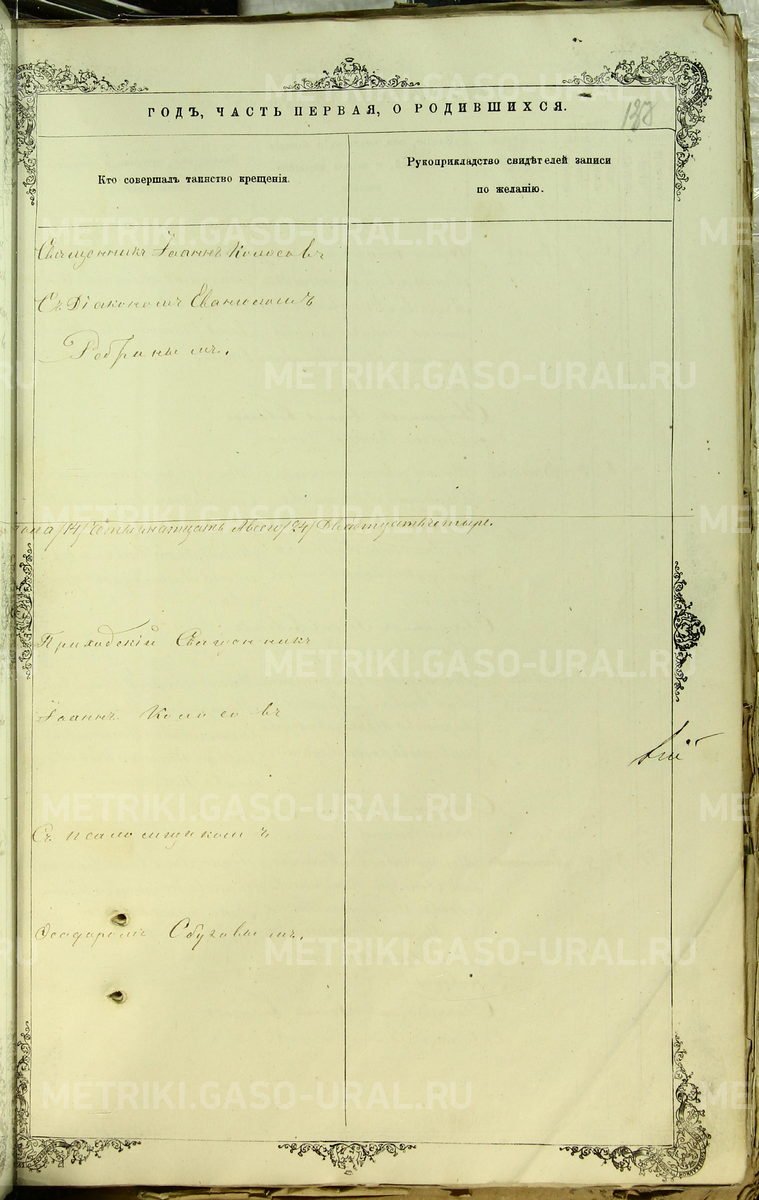 ГОДЪ, ЧАСТЬ ПЕРВАЯ, О РОДИВШИХСЯ.
138
Кто совершалъ таинство крещенія.
Рукоприкладство свидѣтелей записи
по желанію.
Священникъ Іоаннъ Колосовъ
Съ Діакономъ
пола /14/ Четырнатцать Авсего /24/ Дватцать четыре.
Приходскій Священникъ
Іоаннъ Колосовъ
Съ псаломщикомъ
Ѳеодоромъ Обуховымъ.
METRIKI.GASO-URAL.RU